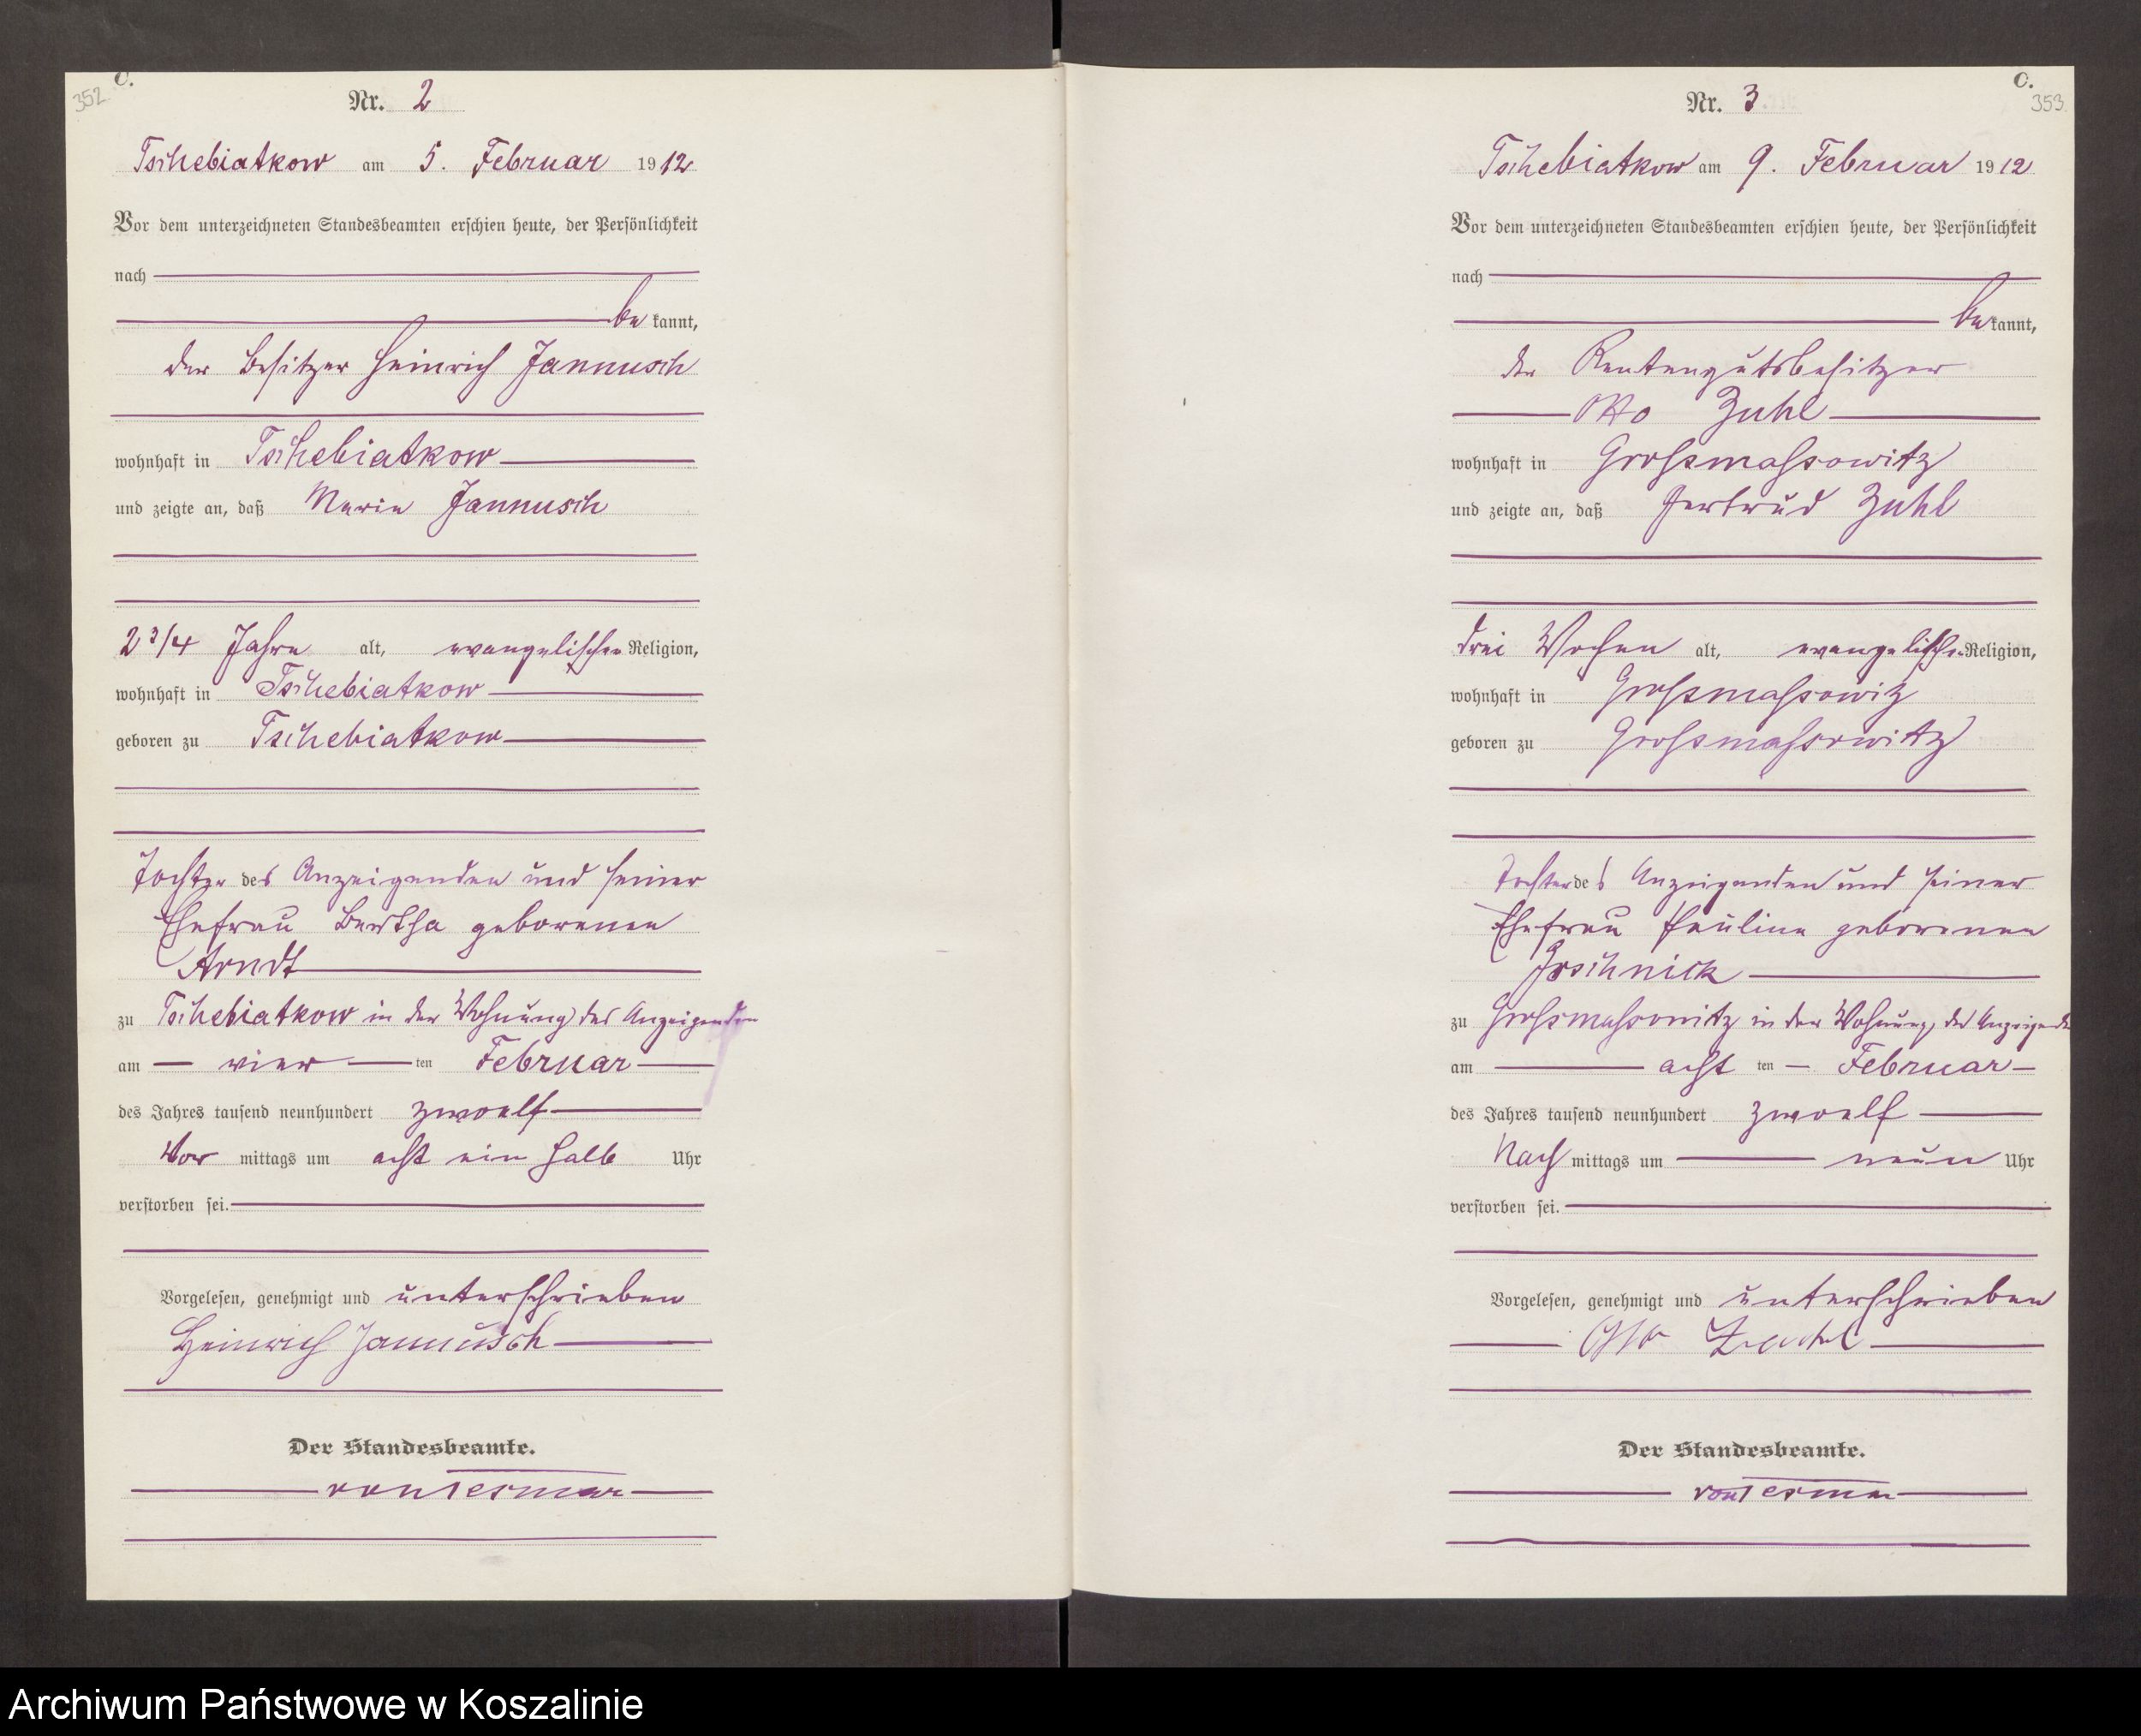 352
C.
Nr. 2
Tschebiatkow am 5. Februar 1912
Vor dem unterzeichneten Standesbeamten erschien heute, der Persönlichkeit
nach
be kannt,
der Besitzer Heinrich Jannusch
wohnhaft in Tschebiatkow
und zeigte an, daß Marie Jannusch
2 3/4 Jahre alt, evangelischer Religion,
wohnhaft in Tschebiatkow
geboren zu Tschebiatkow
Tochter des Anzeigenden und seiner
Ehefrau Bertha geborenen
Arndt
zu Tschebiatkow in der Wohnung des Anzeigenden
am vier ten Februar
des Jahres tausend neunhundert zwoelf
Vor mittags um acht ein halb Uhr
verstorben sei.
Vorgelesen, genehmigt und unterschrieben
Heinrich Jannusch
Der Standesbeamte.
von Tesmar
C.
353
Nr. 3
Tschebiatkow am 9. Februar 1912
Vor dem unterzeichneten Standesbeamten erschien heute, der Persönlichkeit
nach
be kannt,
der Rentengutsbesitzer
Otto Zuhl
wohnhaft in Grossmassowitz
und zeigte an, daß Gertrud Zuhl
drei Wochen alt, evangelischer Religion,
wohnhaft in Grossmassowitz
geboren zu Grossmassowitz
Tochter des Anzeigenden und seiner
Ehefrau Pauline geborenen
Joschnick
zu Grossmassowitz in der Wohnung des Anzeigenden
am acht ten Februar
des Jahres tausend neunhundert zwoelf
Nach mittags um neun Uhr
verstorben sei.
Vorgelesen, genehmigt und unterschrieben
Otto Zuhl
Der Standesbeamte.
von Tesmar
Archiwum Państwowe w Koszalinie